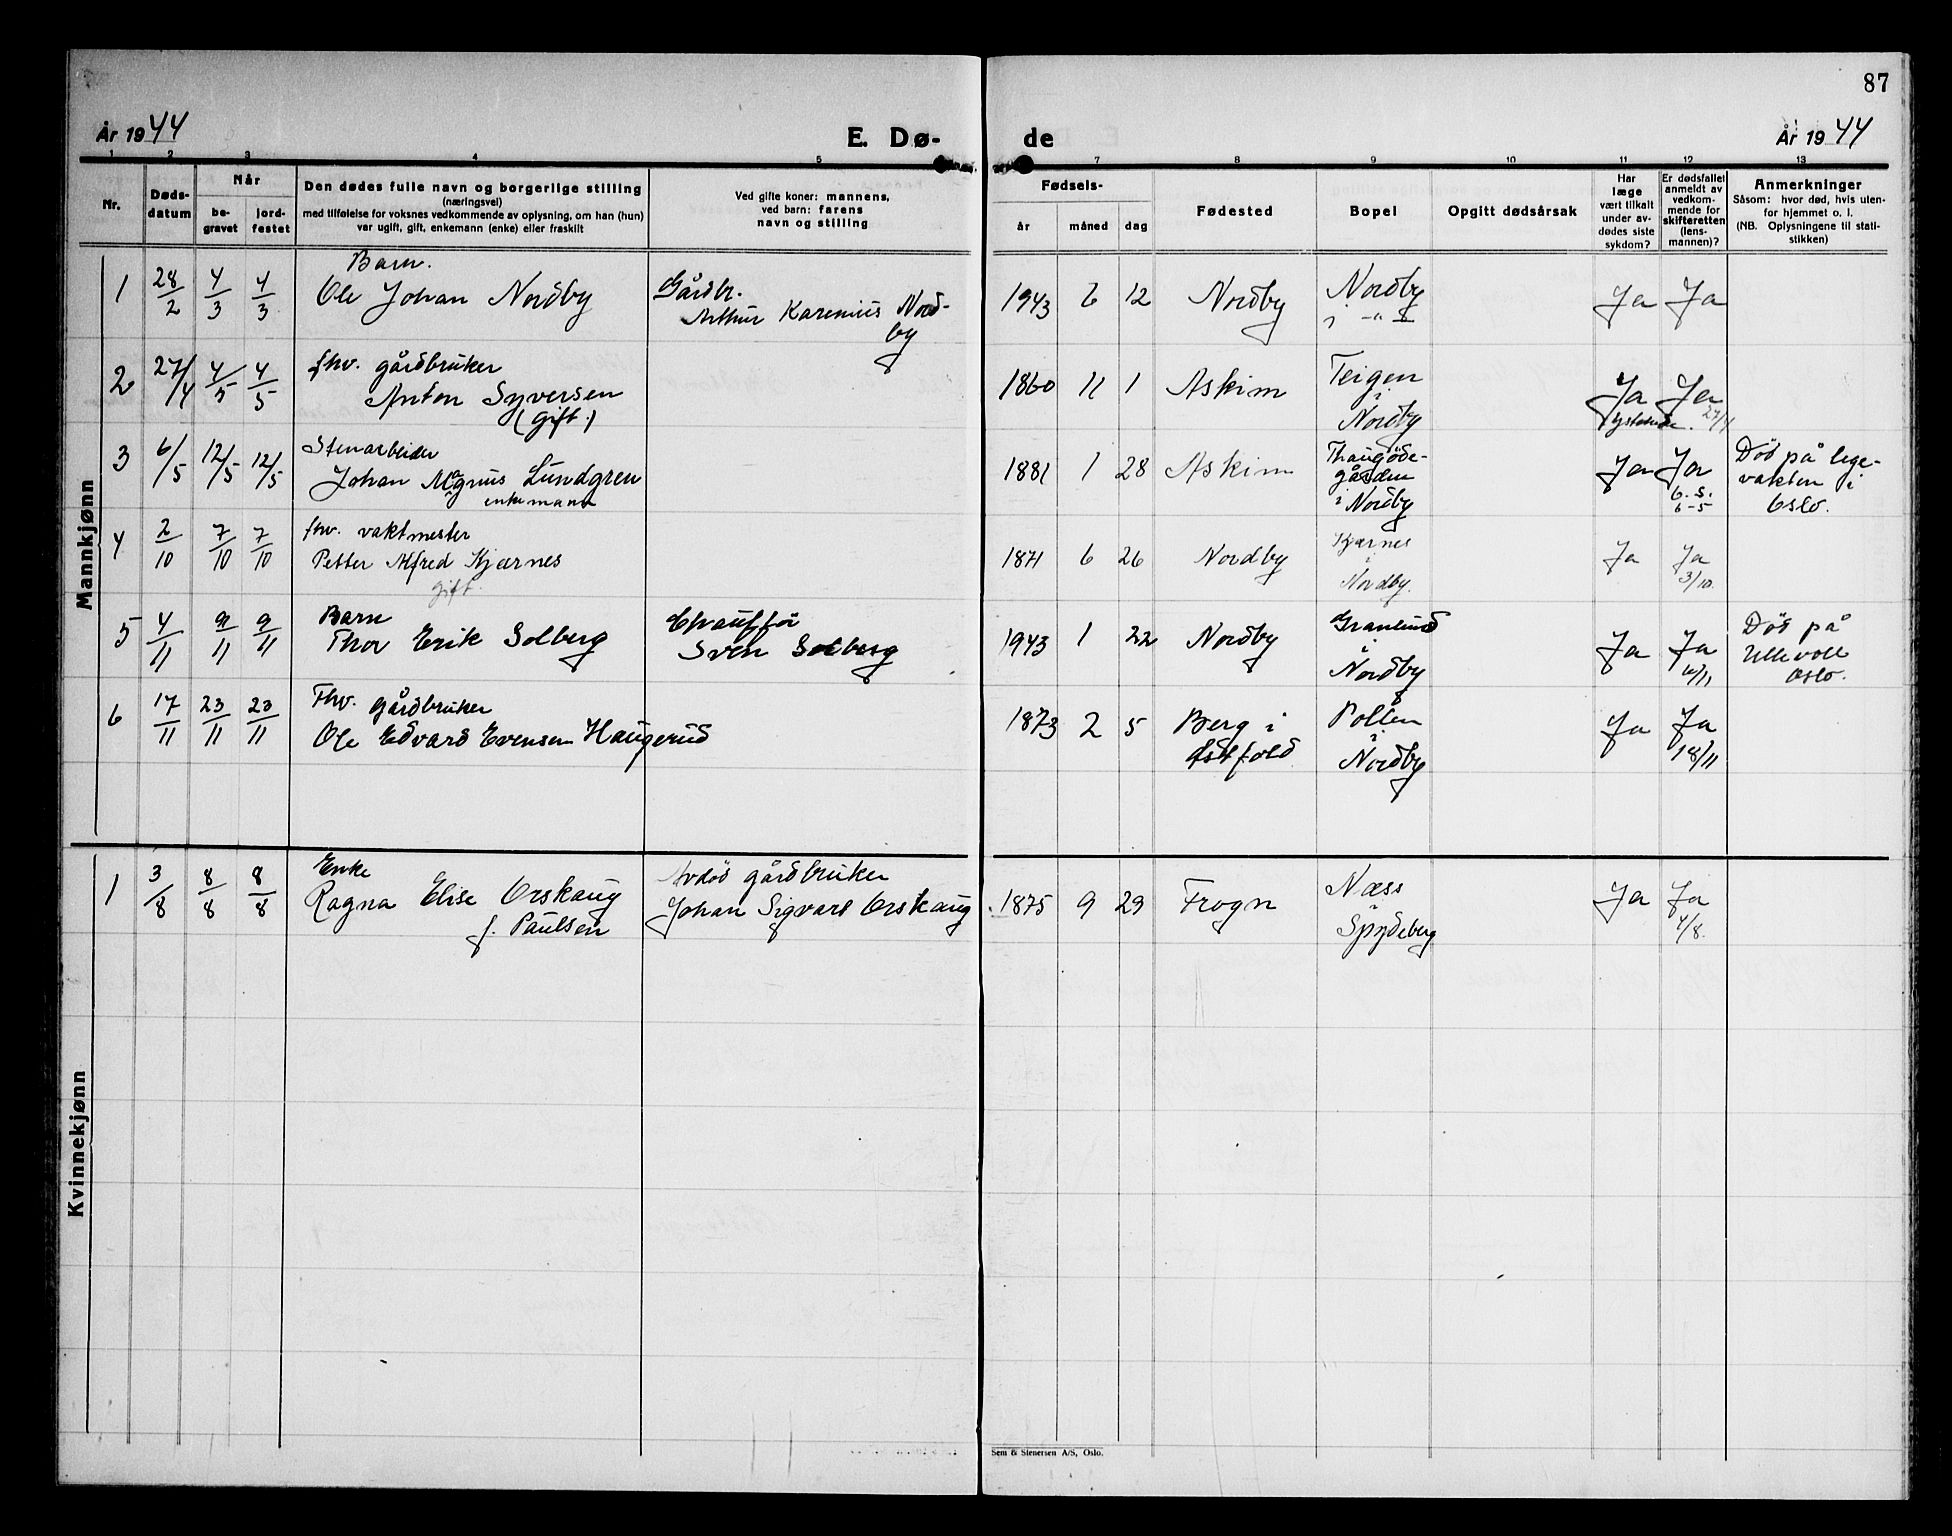 87
År 1944
E. Dø-
de
År 1944
1 2 3 4 5
7 8 9 10 11 12 13
Nr.
Døds-
datum
Når
be-
gravet
jord-
festet
Den dødes fulle navn og borgerlige stilling
(næringsvei)
med tilføielse for voksnes vedkommende av oplysning, om han (hun)
var ugift, gift, enkemann (enke) eller fraskilt
Ved gifte koner: mannens,
ved barn: farens
navn og stilling
Fødsels-
år måned dag
Fødested
Bopel
Opgitt dødsårsak
Har
læge
vært tilkalt
under av-
dødes siste
sykdom?
Er dødsfallet
anmeldt av
vedkom-
mende for
skifteretten
(lens-
mannen)?
Anmerkninger
Såsom: hvor død, hvis uten-
for hjemmet o. l.
(NB. Oplysningene til stati-
stikken)
Mannkjønn
1 28/2 4/3 4/3
Barn.
Ole Johan Nordby
Gårdbr.
Arthur Karenius Nord-
by
1943 6 12 Nordby
Nordby
i -"-
Ja Ja
2 27/4 4/5 4/5
fhv. gårdbruker
Anton Syversen
(gift.)
1860 11 1 Askim
Teigen
i
Nordby
Ja Ja
27/4
3 6/5 12/5 12/5
Stenarbeider
Johan Magnus Lundgren
enkemann
1881 1 28 Askim
gården
i Nordby
Ja Ja
6-5.
6-5
Död på lege-
vakten i
Oslo.
4 2/10 7/10 7/10
fhv. vaktmester
Petter Alfred Kjærnes
gift.
1871 6 26 Nordby
Kjærnes
i
Nordby.
Ja Ja
3/10.
5 4/11 9/11 9/11
Barn
Thor Erik Solberg
Chaufför
Sven Solberg
1943 1 22 Nordby
Granlund
i
Nordby
Ja Ja
Död på
Ullevoll
Oslo.
6 17/11 23/11 23/11
Fhv. gårdbruker
Ole Edvard Evensen Haugerud
1873 2 5 Berg i
Östfold
Pollen
i
Nordby
Ja Ja
18/11
Kvinnekjønn
1 3/8 8/8 8/8
Enke
Ragna Elise Orskaug
f. Paulsen
Avdöd gårdbruker
Johan Sigvart Orskaug
1875 9 29 Frogn
Næss
i
Spydeberg
Ja Ja
4/8.
Sem & Stenersen A/S, Oslo.